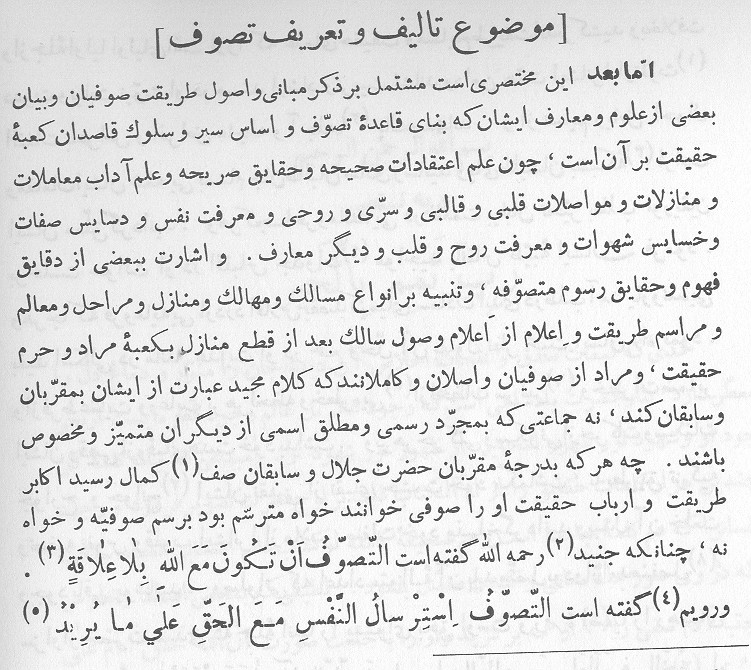 [موضوع تالیف و تعریف تصوف]
امّا بعد این مختصری است مشتمل بر ذکر مبانی و اصول طریقت صوفیان و بیان
بعضی از علوم و معارف ایشان که بنای قاعدهٔ تصوّف و اساس سیر و سلوك قاصدان کعبهٔ
حقیقت بر آن است ، چون علم اعتقادات صحیحه و حقایق صریحه و علم آداب معاملات
و منازلات و مواصلات قلبی و قالبی و سرّی و روحی و معرفت نفس و دسایس صفات
و خسایس شهوات و معرفت روح و قلب و دیگر معارف . و اشارت ببعضی از دقایق
فهوم و حقایق رسوم متصوّفه ، و تنبیه بر انواع مسالك و مهالك و منازل و مراحل و معالم
و مراسم طریقت و اِعلام از اَعلام وصول سالك بعد از قطع منازل بکعبهٔ مراد و حرم
حقیقت ، و مراد از صوفیان واصلان و کاملانند که کلام مجید عبارت از ایشان بمقرّبان
و سابقان کند ، نه جماعتی که بمجرّد رسمی و مطلق اسمی از دیگران متمیّز و مخصوص
باشند . چه هر که بدرجهٔ مقرّبان حضرت جلال و سابقان صف(۱) کمال رسید اکابر
طریقت و ارباب حقیقت او را صوفی خوانند خواه مترسّم بود برسم صوفیّه و خواه
نه ، چنانکه جنید(۲) رحمه الله گفته است التَّصوّفُ اَنْ تَکُونَ مَعَ اللّٰهِ بِلاٰ عَلاٰقَةٍ (۳) .
و رویم(۴) گفته است التَّصوّفُ اِسْتِرْسالُ النَّفْسِ مَعَ الحَقِّ عَلَیٰ مٰا یُرِیْدُ (٥)